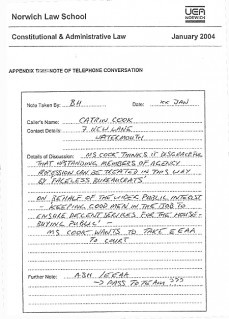 Norwich Law School
UEA
NORWICH
Constitutional & Administrative Law January 2004
NOTE OF TELEPHONE CONVERSATION
Note Taken By: BH Date: xx JAN
Caller's Name: CATRIN COOK
Contact Details: 7 NEW LANE
WATERMOUTH
Details of Discussion: MS COOK THINKS IT DISGRACEFUL
THAT UPSTANDING MEMBERS OF AGENCY
PROFESSION CAN BE TREATED IN THIS WAY
BY 'FACELESS BUREAUCRATS'
ON BEHALF OF THE WIDER PUBLIC INTEREST
- KEEPING GOOD MEN IN THE JOB TO
ENSURE DECENT SERVICES FOR THE HOUSE-
BUYING PUBLIC' -
MS COOK WANTS TO TAKE EEAA
TO COURT
Further Note: ASH / EEAA
→ PASS TO TEAM ???